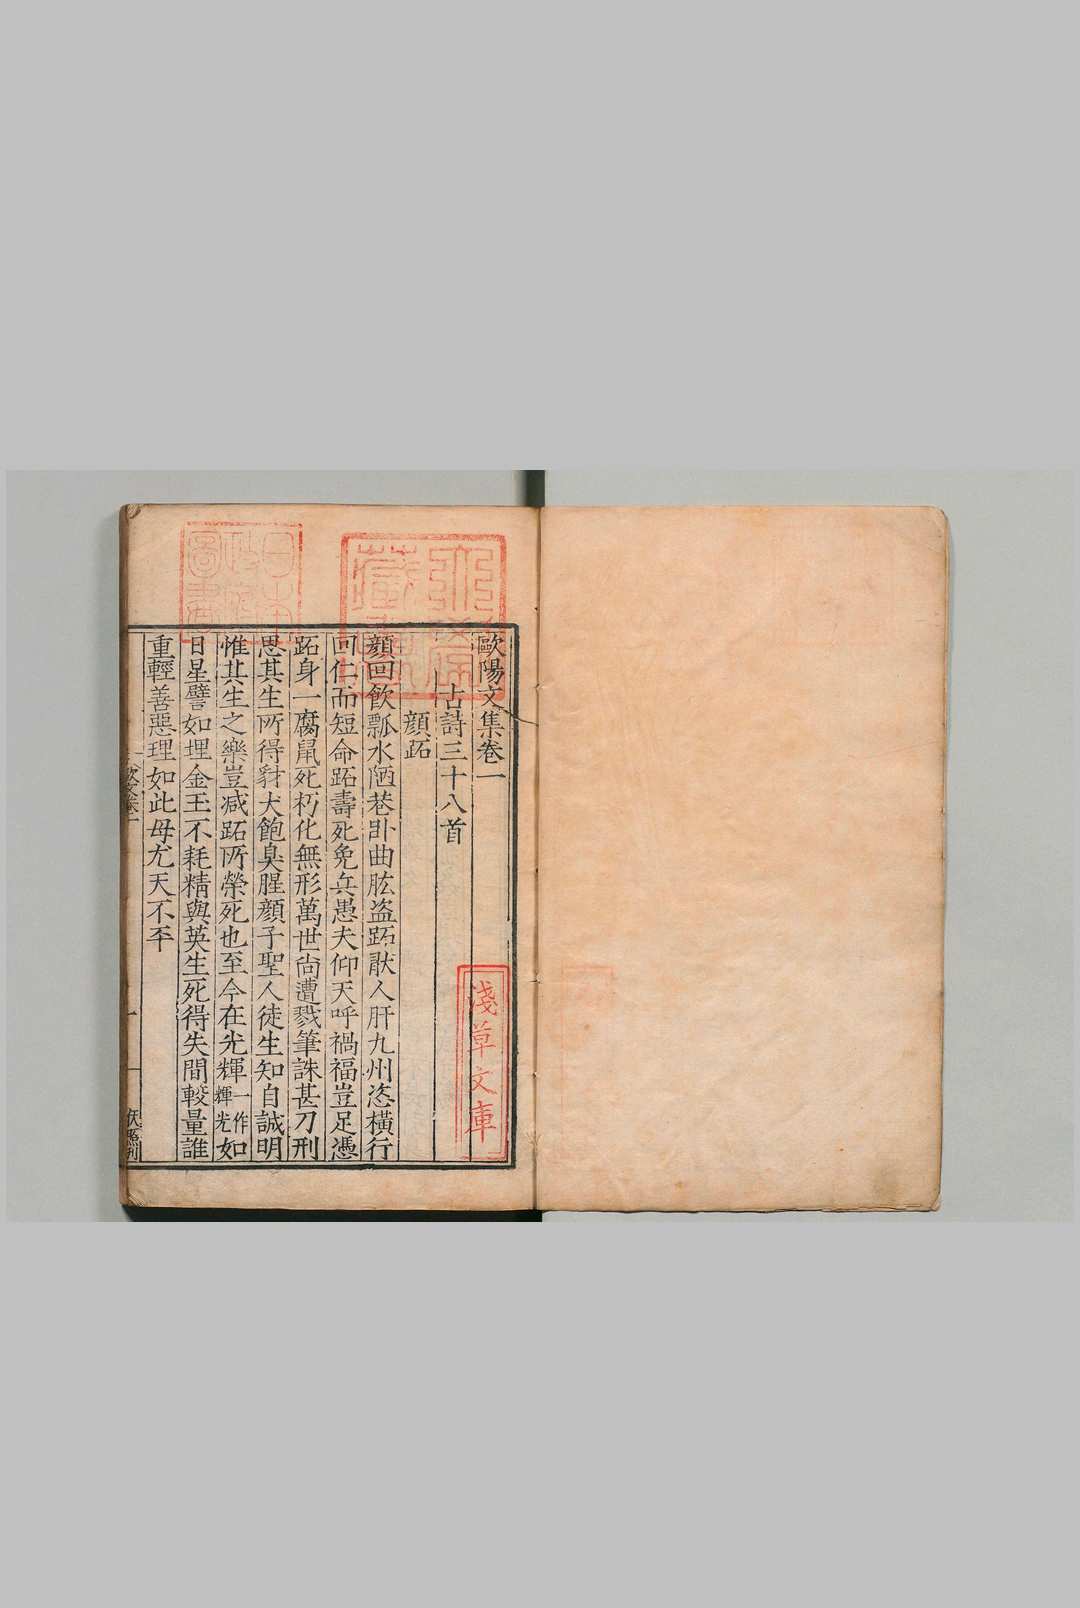 歐陽文集卷一
古詩三十八首
顔跖
顔回飲瓢水陋巷卧曲肱盜跖猒人肝九州恣橫行
回仁而短命跖壽死免兵愚夫仰天呼禍福豈足憑
跖身一腐鼠死朽化無形萬世尚遭戮筆誅甚刀刑
思其生所得豺犬飽臭腥顔子聖人徒生知自誠明
惟其生之樂豈减跖所榮死也至今在光輝一作輝光如
日星譬如埋金玉不耗精與英生死得失間較量誰
重輕善惡理如此毋尤天不平
淺草文庫
日本政府圖書